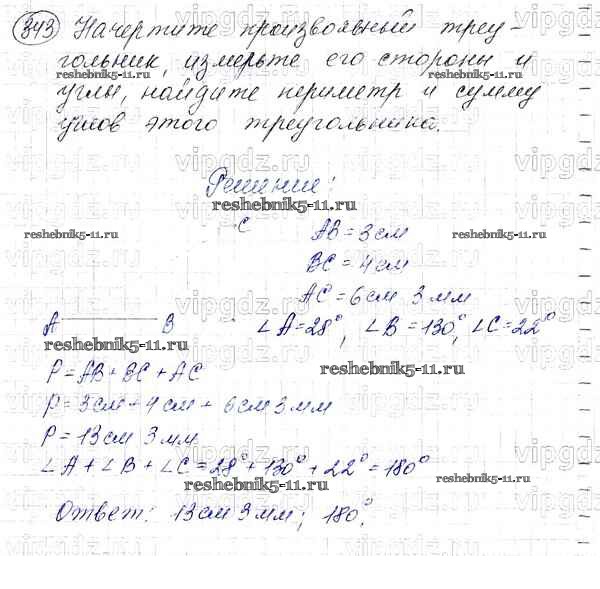 343 Начертите произвольный треу-
гольник, измерьте его стороны и
углы, найдите периметр и сумму
углов этого треугольника.
Решение:
C
AB = 3 см
BC = 4 см
AC = 6 см 3 мм
A B
∠A = 28°, ∠B = 130°, ∠C = 22°
P = AB + BC + AC
P = 3 см + 4 см + 6 см 3 мм
P = 13 см 3 мм
∠A + ∠B + ∠C = 28° + 130° + 22° = 180°
Ответ: 13 см 3 мм; 180°.
reshebnik5-11.ru
vipgdz.ru